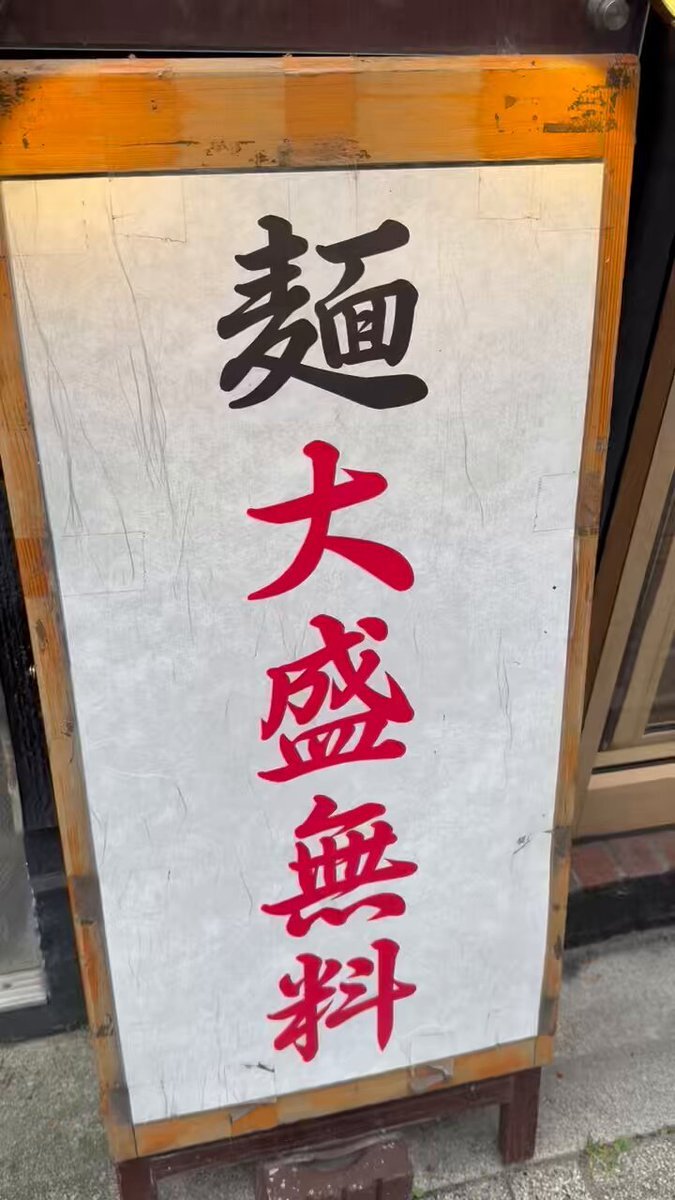 麺大盛無料